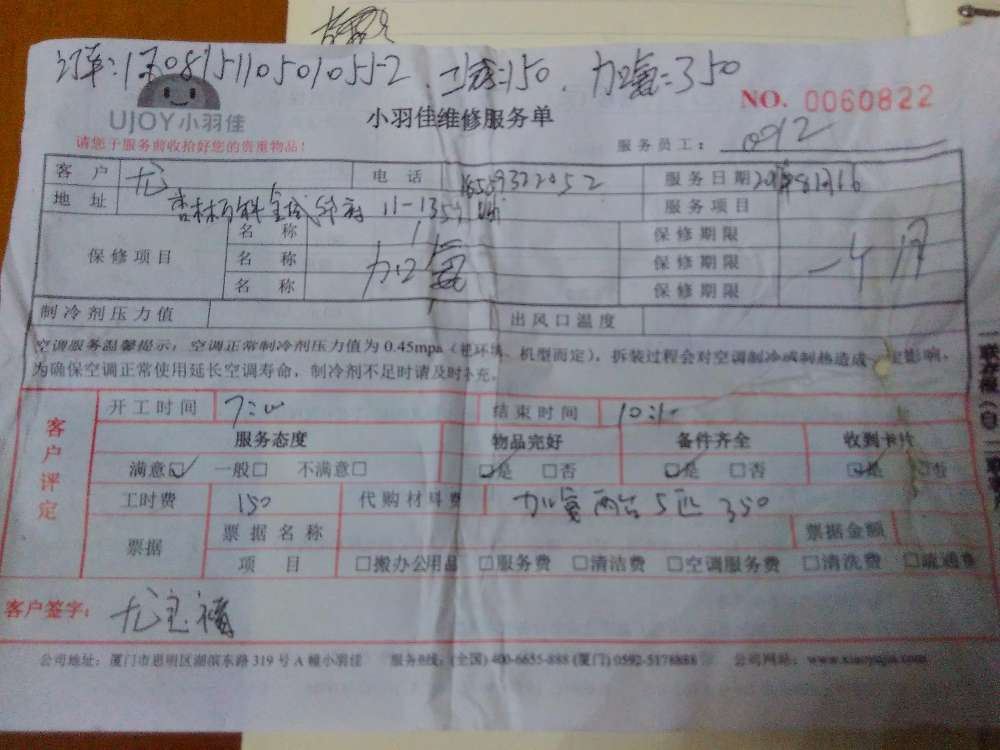 工费:150. 加氨=350
NO. 0060822
UJOY小羽佳
小羽佳维修服务单
请您于服务前收拾好您的贵重物品!
服务员工:
客 户 尤 电 话 服务日期
地 址 11-1354 服务项目
名 称 保修期限
保修项目 名 称 加氨 保修期限 一个月
名 称 保修期限
制冷剂压力值 出风口温度
空调服务温馨提示:空调正常制冷剂压力值为 0.45mpa(视环境、机型而定),拆装过程会对空调制冷或制热造成一定影响。
为确保空调正常使用延长空调寿命,制冷剂不足时请及时补充。
客户评定
开工时间 结束时间
服务态度 物品完好 备件齐全 收到卡片
满意☑ 一般□ 不满意□ ☑是 □否 ☑是 □否 ☑是 □否
工时费 150 代购材料费 加氨两台5匹 350
票据 票据名称 票据金额
项 目 □搬办公用品 □服务费 □清洁费 □空调服务费 □清洗费 □疏通费
客户签字: 尤宝福
公司地址:厦门市思明区湖滨东路 319 号 A 幢小羽佳 服务热线:(全国) 400-6655-888 (厦门) 0592-5178888 公司网站:www.xiaoyujia.com